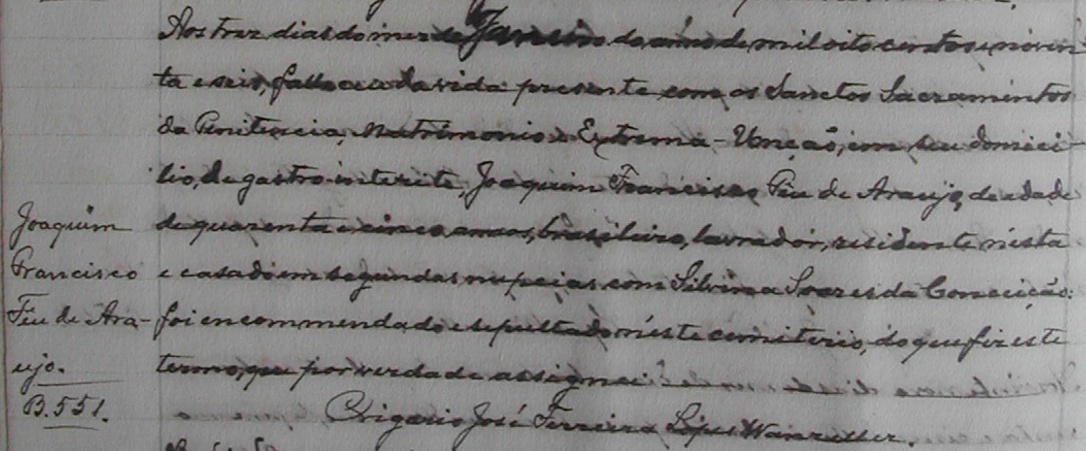 Aos trez dias do mez de Janeiro do anno de mil oito centos e noven
ta e seis, falleceu da vida presente com os Sanctos Sacramentos
da Penitencia, Matrimonio e Extrema-Unção, em seu domici-
lio, de gastro interite, Joaquim Francisco Fiu de Araujo, de edade
de quarenta e cinco annos, brasileiro, lavrador, residente n'esta
e casado em segundas nupcias com Silvina Soares da Conceição:
foi encommendado e sepultado n'este cemiterio, do que fiz este
termo, que por verdade assignei.
O Vigario José Ferreira Lopes
Joaquim
Francisco
Fiu de Ara-
ujo.
B.551.